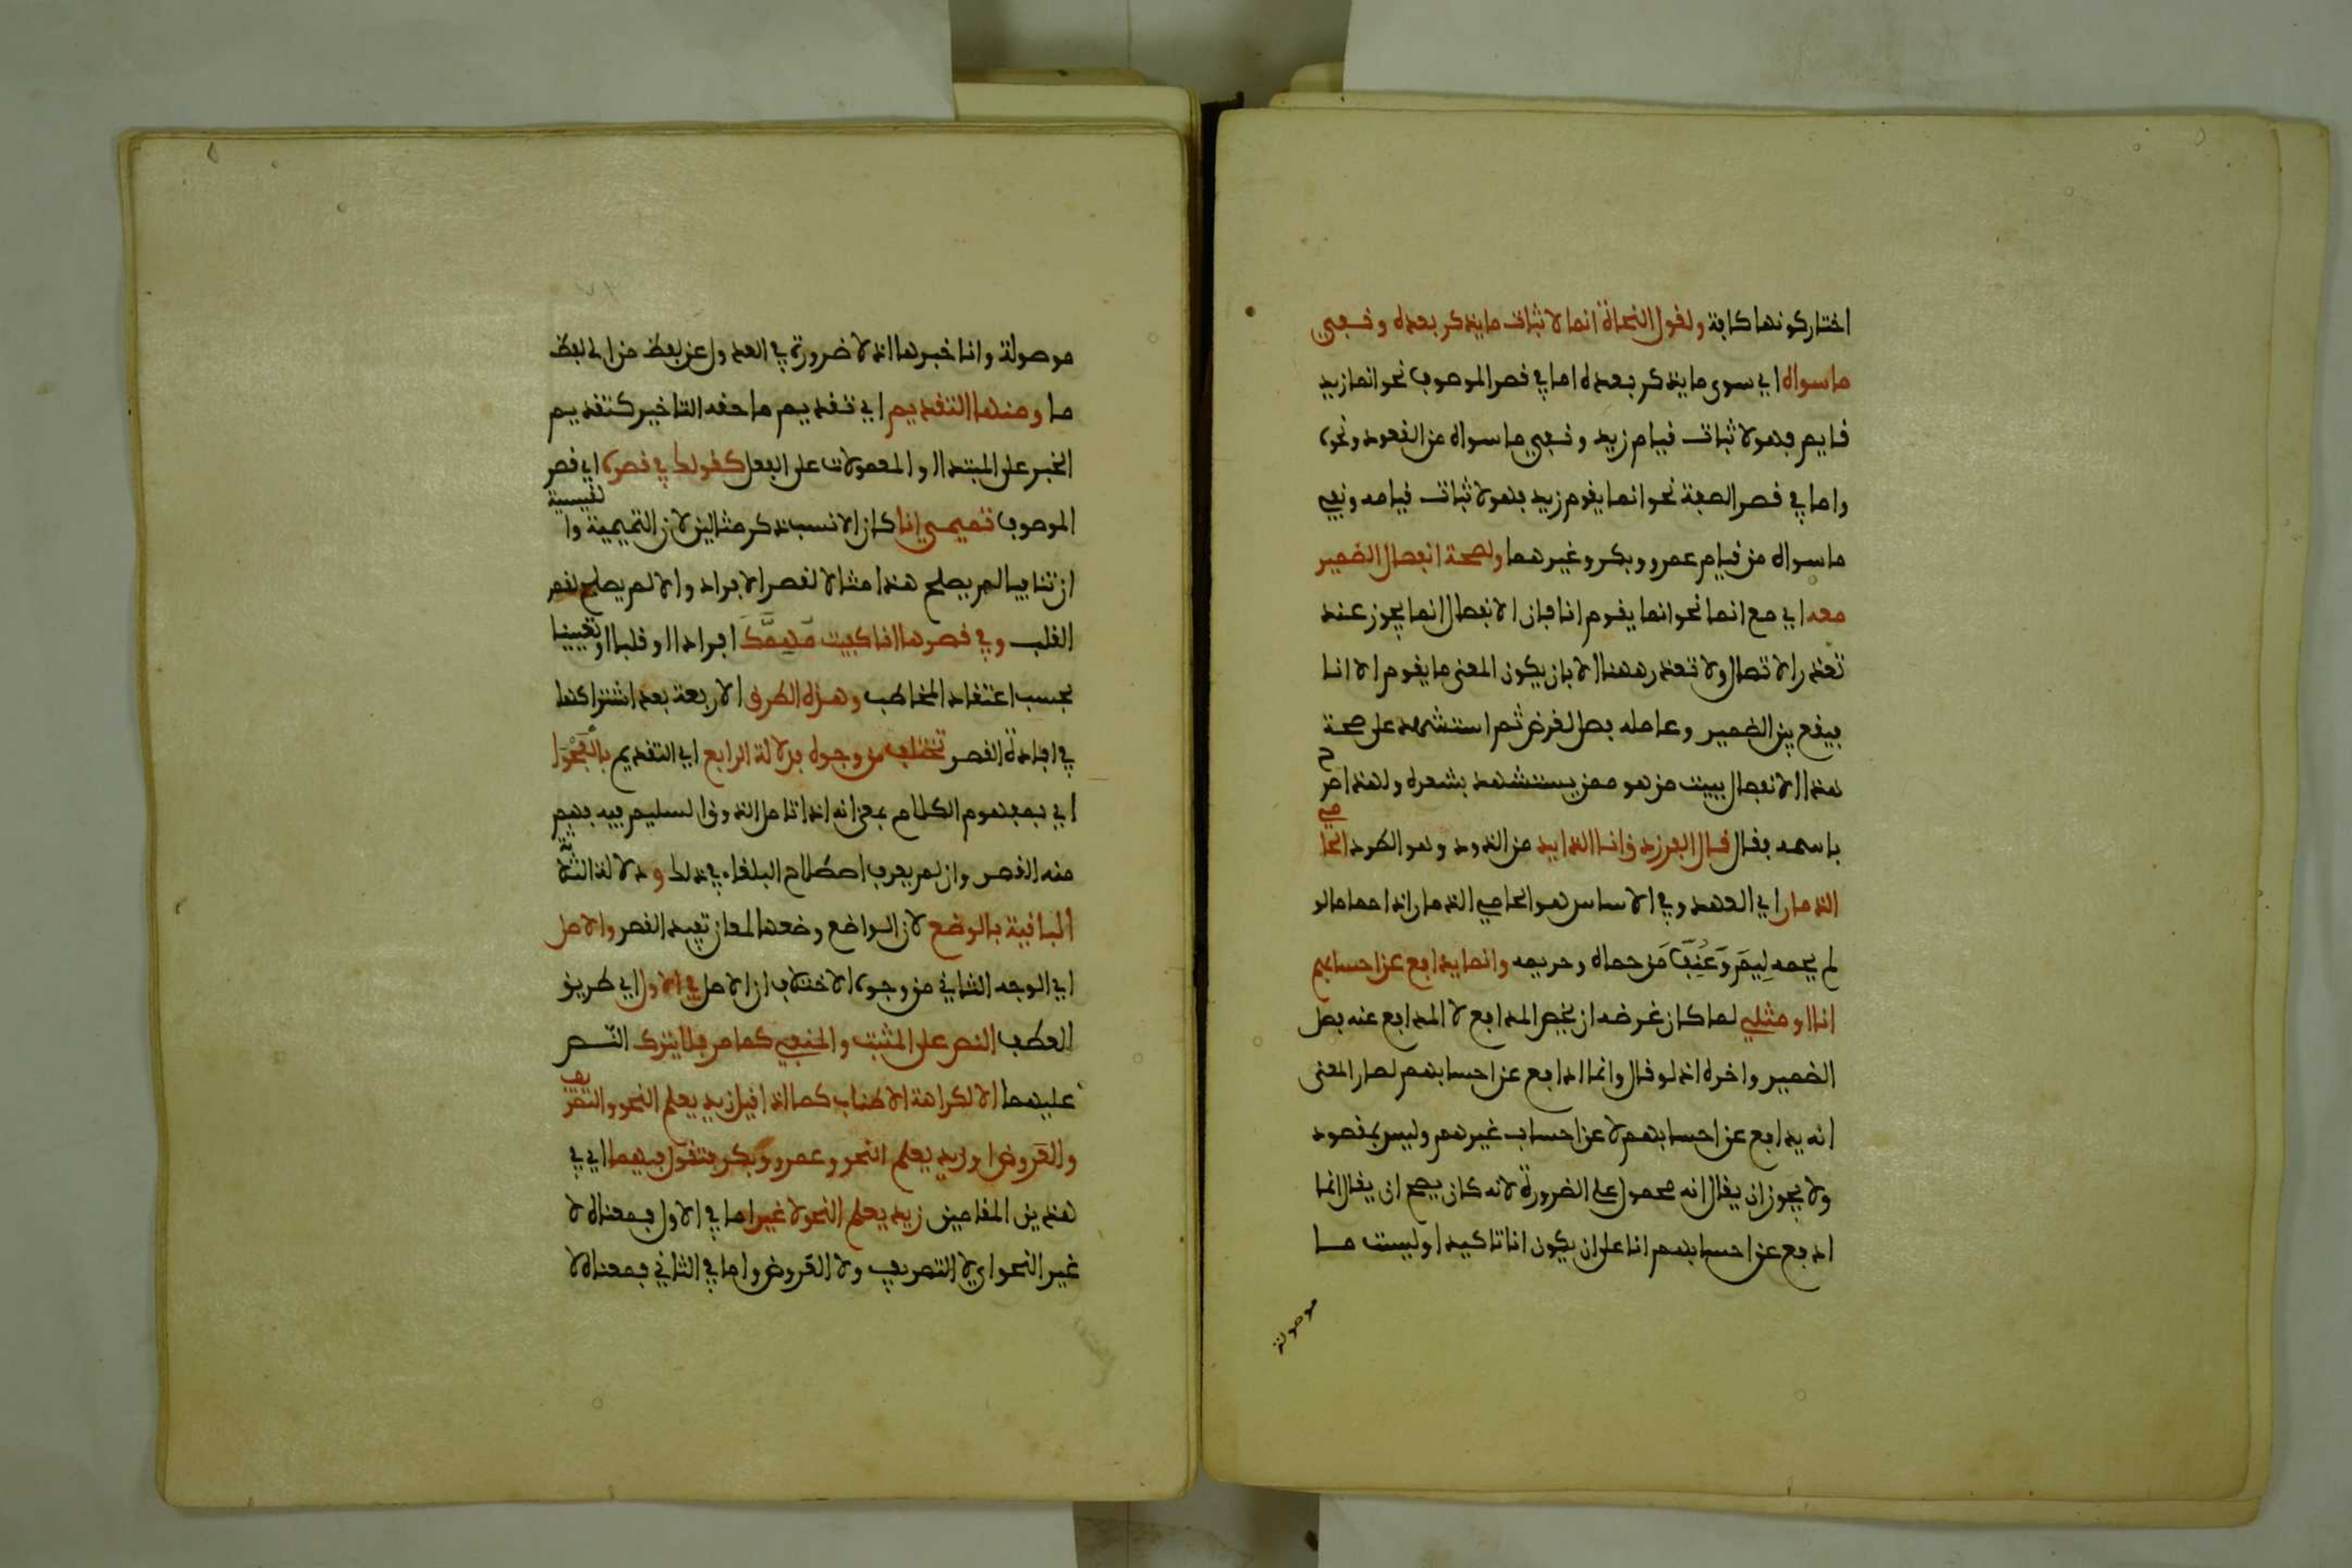 اختار كونها كافة ولقول النحاة انما لاثبات ما يذكر بعده ونفي
ما سواه اي سوى ما يذكر بعده اما في قصر الموصوف نحو انما زيد
قايم فهو لاثبات قيام زيد ونفي ما سواه من القعود ونحوه
واما في قصر الصفة نحو انما يقوم زيد فهو لاثبات قيامه ونفي
ما سواه من قيام عمرو وبكر وغيرهما ولصحة انفصال الضمير
معه اي مع انما نحو انما يقوم انا فان الانفصال انما يجوز عند
تعذر الاتصال ولا تعذر ههنا الا بان يكون المعنى ما يقوم الا انا
فيقع بين الضمير وعامله فصل لغرض ثم استشهد على صحة
هذا الانفصال ببيت من هو ممن يستشهد بشعره ولهذا صرح
باسمه فقال قال الفرزدق انا الذايد من الذود وهو الطرد الحامي
الذمار اي العهد وفي الاساس هو الحامي الذمار اذا حما ما لو
لم يحمه ليم وعنف من حماه وحريمه وانما يدافع عن احسابهم
انا او مثلي لما كان غرضه ان يخص المدافع لا المدافع عنه فصل
الضمير واخره اذ لو قال وانما ادافع عن احسابهم لصار المعنى
انه يدافع عن احسابهم لا عن احساب غيرهم وليس بمقصود
ولا يجوز ان يقال انه محمول على الضرورة لانه كان يصح ان يقال انما
ادفع عن احسابهم انا على ان يكون انا تاكيدا وليست ما
موصولة
موصولة وانا خبرها اذ لا ضرورة في العدول عن لفظ من الى لفظ
ما ومنها التقديم اي تقديم ما حقه التاخير كتقديم
الخبر على المبتدا او المعمولات على الفعل كقولك في قصره اي قصر
الموصوف تميمي انا كان الانسب ذكر مثالين لان التميمية والقيسية
ان تنافيا لم يصلح هذا مثالا لقصر الافراد والا لم يصلح لقصر
القلب وفي قصرها انا كفيت مهمك افرادا او قلبا او تعيينا
بحسب اعتقاد المخاطب وهذه الطرق الاربعة بعد اشتراكها
في افادة القصر تختلف من وجوه فدلالة الرابع اي التقديم بالفحوا
اي بمفهوم الكلام بمعنى انه اذا تامل الذوق السليم فيه فهم
منه القصر وان لم يعرف اصطلاح البلغاء في ذلك ودلالة الثلاثة
الباقية بالوضع لان الواضع وضعها لمعان تفيد القصر والاصل
اي الوجه الثاني من وجوه الاختلاف ان الاصل في الاول اي طريق
العطف النص على المثبت والمنفي كما مر فلا يترك النص
عليهما الا لكراهة الاطناب كما اذا قيل زيد يعلم النحو والتصريف
والعروض او زيد يعلم النحو وعمرو وبكر فتقول فيهما اي في
هذين المقامين زيد يعلم النحو لا غير اما في الاول فمعناه لا
غير النحو اي لا التصريف ولا العروض واما في الثاني فمعناه لا